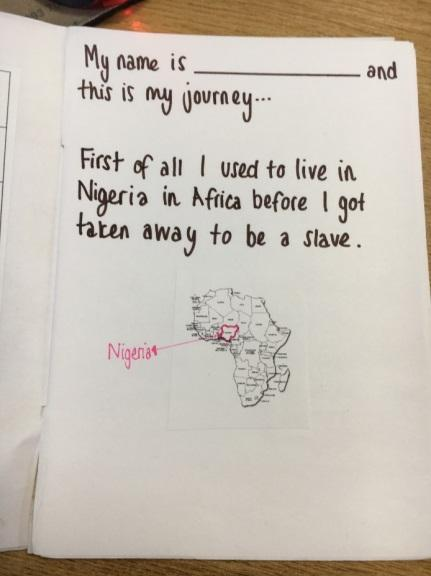 My name is ____________ and
this is my journey...
First of all I used to live in
Nigeria in Africa before I got
taken away to be a slave.
Nigeria